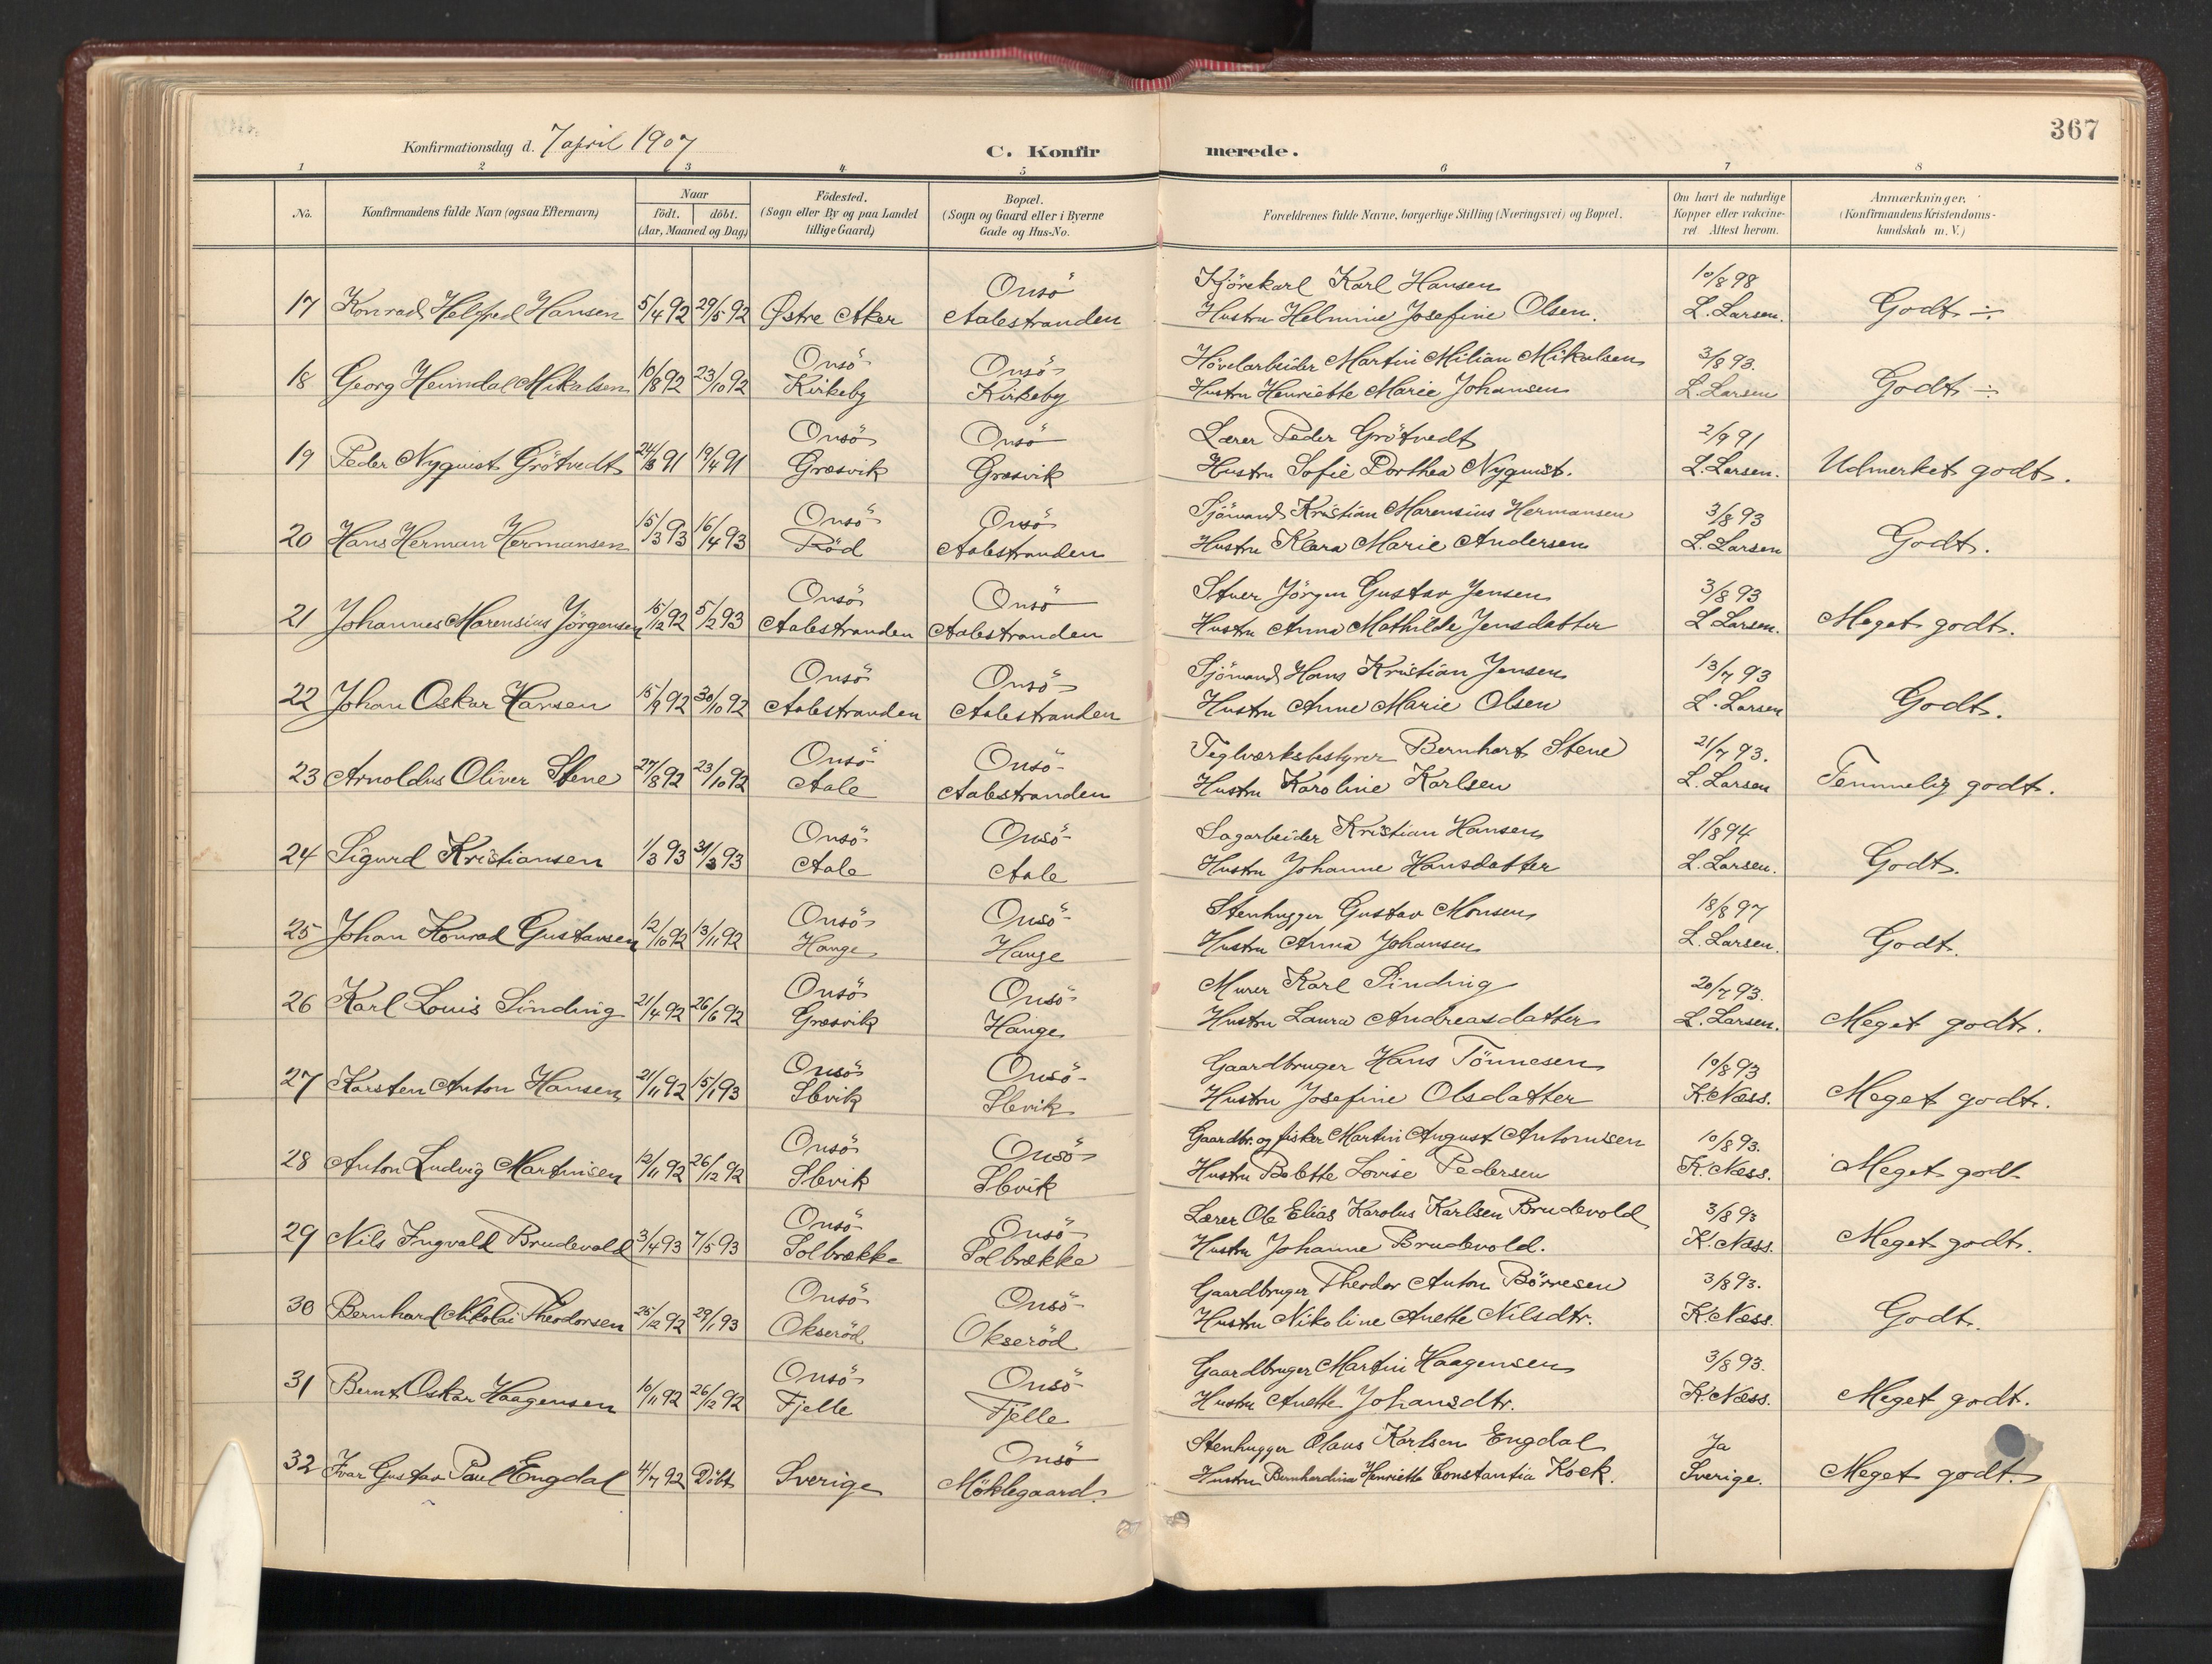 367
Konfirmationsdag d. 7 april 1907
C. Konfirmerede.
1 2 3 4 5 6 7 8
No. Konfirmandens fulde Navn (ogsaa Efternavn) Naar födt. döbt. (Aar, Maaned og Dag) Födested. (Sogn eller By og paa Landet tillige Gaard) Bopæl. (Sogn og Gaard eller i Byerne Gade og Hus-No. Forældrenes fulde Navne, borgerlige Stilling (Næringsvei) og Bopæl. Om havt de naturlige Kopper eller vakcineret. Attest herom. Anmærkninger. (Konfirmandens Kristendomskundskab m. V.)
Onsö Kjörekarl Karl Hansen 10/8 98
17 Konrad Helfred Hansen 5/4 92 29/5 92 Østre Aker Aalestranden Hustru Helmine Josefine Olsen. L. Larsen. Godt ÷
Onsö Onsö Hövelarbeider Martin Milian Mikalsen 3/8 93.
18 Georg Heimdal Mikalsen 10/8 92 23/10 92 Kirkeby Kirkeby Hustru Henriette Marie Johansen L. Larsen Godt ÷
Onsö Onsö Lærer Peder Grötvedt 2/9 91
19 Peder Nyquist Grötvedt 24/3 91 19/4 91 Græsvik Græsvik Hustru Sofie Dorthea Nyquist. L. Larsen. Udmerket godt.
Onsö Onsö Sjömand Kristian Marensius Hermansen 3/8 93
20 Hans Herman Hermansen 15/3 93 16/4 93 Röd Aalestranden Hustru Klara Marie Andersen L. Larsen Godt.
Onsö Onsö Stuer Jörgen Gustav Jensen 3/8 93
21 Johannes Marensius Jörgensen 15/12 92 5/2 93 Aalestranden Aalestranden Hustru Anna Mathilde Jensdatter L Larsen. Meget godt.
Onsö Onsö Sjömand Hans Kristian Jensen 13/7 93
22 Johan Oskar Hansen 15/9 92 30/10 92 Aalestranden Aalestranden Hustru Anne Marie Olsen L. Larsen Godt.
Onsö Onsö Teglværksbestyrer Bernhart Stene 21/7 93.
23 Arnoldus Oliver Stene 27/8 92 23/10 92 Aale Aalestranden Hustru Karoline Karlsen L. Larsen Temmelig godt.
Onsö Onsö Sagarbeider Kristian Hansen 1/8 94
24 Sigurd Kristiansen 1/3 93 31/3 93 Aale Aale Hustru Johanne Hansdatter L. Larsen. Godt.
Onsö Onsö Stenhugger Gustav Monsen 18/8 97
25 Johan Konrad Gustavsen 12/10 92 13/11 92 Hauge Hauge Hustru Anna Johansen L. Larsen. Godt.
Onsö Onsö Murer Karl Sinding 20/7 93.
26 Karl Louis Sinding 21/4 92 26/6 92 Græsvik Hauge Hustru Laura Andreasdatter L. Larsen. Meget godt.
Onsö Onsö Gaardbruger Hans Tönnesen 10/8 93
27 Karsten Anton Hansen 21/11 92 15/1 93 Slevik Slevik Hustru Josefine Olsdatter K. Næss. Meget godt.
Onsö Onsö Gaardbr. og fisker Martin August Antonisen 10/8 93.
28 Anton Ludvig Martinsen 12/11 92 26/12 92 Slevik Slevik Hustru Bolette Lovise Pedersen K. Næss. Meget godt
Onsö Onsö Lærer Ole Elias Karolus Karlsen Brudevold 3/8 93
29 Nils Ingvald Brudevold 3/4 93 7/5 93 Solbrække Solbrække Hustru Johanne Brudevold. K. Næss. Meget godt.
Onsö Onsö Gaardbruger Theodor Anton Börresen 3/8 93.
30 Bernhard Nikolai Theodorsen 25/12 92 29/1 93 Okseröd Okseröd Hustru Nikoline Anette Nilsdtr. K. Næss. Godt.
Onsö Onsö Gaardbruger Martin Haagensen 3/8 93.
31 Bernt Oskar Haagensen 10/11 92 26/12 92 Fjelle Fjelle Hustru Anette Johansdtr. K. Næss. Meget godt.
Onsö Stenhugger Olaus Karlsen Engdal Ja
32 Ivar Gustav Paul Engdal 4/7 92 Döbt Sverige Möklegaard. Hustru Bernhardina Henriette Constantia Kock. Sverige. Meget godt.